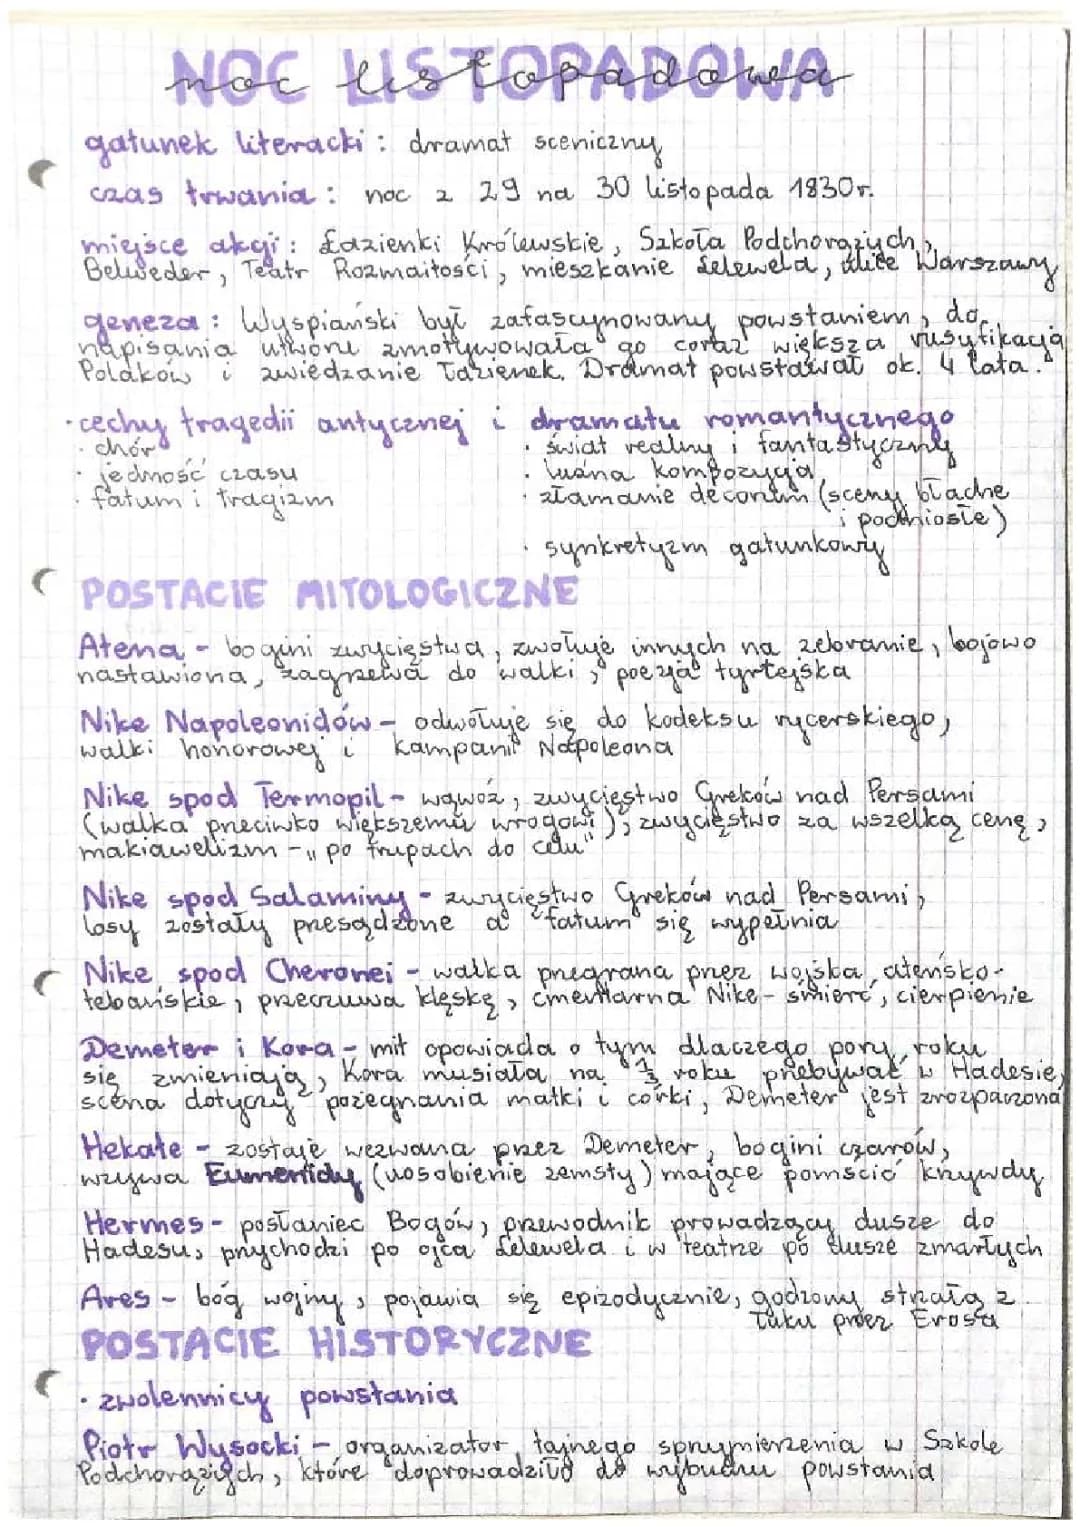 NOC LISTOPADOWA
noc listopadowa
gatunek literacki: dramat sceniczny
czas trwania: noc z 29 na 30 listopada 1830r.
miejsce akcji: Łazienki Królewskie, Szkoła Podchorążych,
Belweder, Teatr Rozmaitości, mieszkanie Lelewela, ulice Warszawy
geneza: Wyspiański był zafascynowany powstaniem, do
napisania utworu zmotywowała go coraz większa rusyfikacja
Polaków i zwiedzanie Łazienek. Dramat powstawał ok. 4 lata.
·cechy tragedii antycznej i dramatu romantycznego
· chór
· jedność czasu
· fatum i tragizm
· świat realny i fantastyczny
· luźna kompozycja
· złamanie decorum (sceny błache
i podniosłe)
· synkretyzm gatunkowy
POSTACIE MITOLOGICZNE
Atena - bogini zwycięstwa, zwołuje innych na zebranie, bojowo
nastawiona, zagrzewa do walki, poezja tyrtejska
Nike Napoleonidów - odwołuje się do kodeksu rycerskiego,
walki honorowej i kampanii Napoleona
Nike spod Termopil - wąwóz, zwycięstwo Greków nad Persami
(walka przeciwko większemu wrogowi), zwycięstwo za wszelką cenę,
makiawelizm - „po trupach do celu"
Nike spod Salaminy - zwycięstwo Greków nad Persami,
losy zostały przesądzone a fatum się wypełnia
Nike spod Cheronei - walka przegrana przez wojska ateńsko-
tebańskie, przeczuwa klęskę, cmentarna Nike - śmierć, cierpienie
Demeter i Kora - mit opowiada o tym dlaczego pory roku
się zmieniają, Kora musiała na 1/3 roku przebywać w Hadesie,
scena dotyczy pożegnania matki i córki, Demeter jest zrozpaczona
Hekate - zostaje wezwana przez Demeter, bogini czarów,
wzywa Eumenidy (uosobienie zemsty) mające pomścić krzywdy
Hermes - posłaniec Bogów, przewodnik prowadzący dusze do
Hadesu, przychodzi po ojca Lelewela i w teatrze po dusze zmarłych
Ares - bóg wojny, pojawia się epizodycznie, godzony strzałą z
łuku przez Erosa
POSTACIE HISTORYCZNE
· zwolennicy powstania
Piotr Wysocki - organizator tajnego sprzymierzenia w Szkole
Podchorążych, które doprowadziło do wybuchu powstania